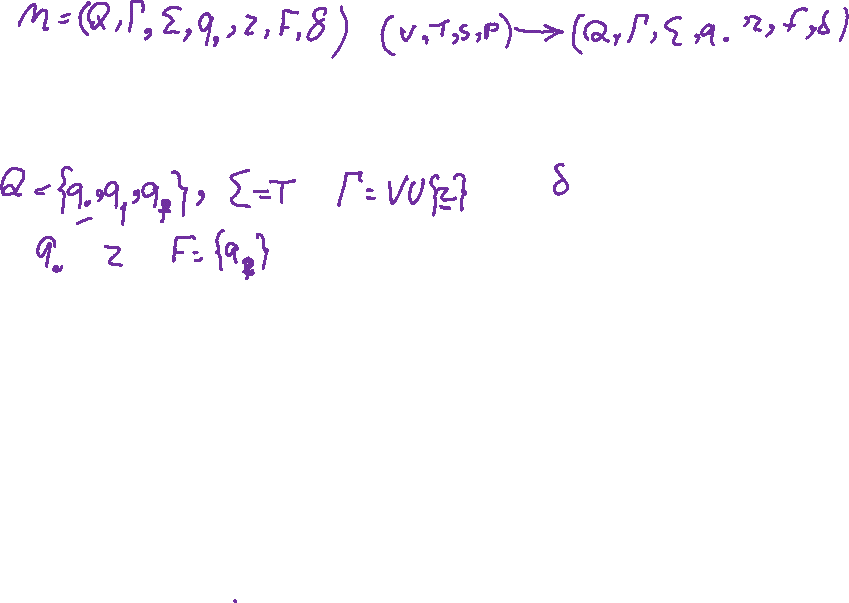 M = (Q, Γ, Σ, q₀, z, F, δ) (V, T, S, P) → (Q, Γ, Σ, q₀, z, F, δ)
Q = {q₀, q₁, q_f}, Σ = T Γ = V ∪ {z} δ
q₀ z F = {q_f}